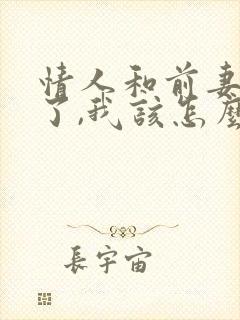 情人和前妻
了,我该怎麽
長宇宙